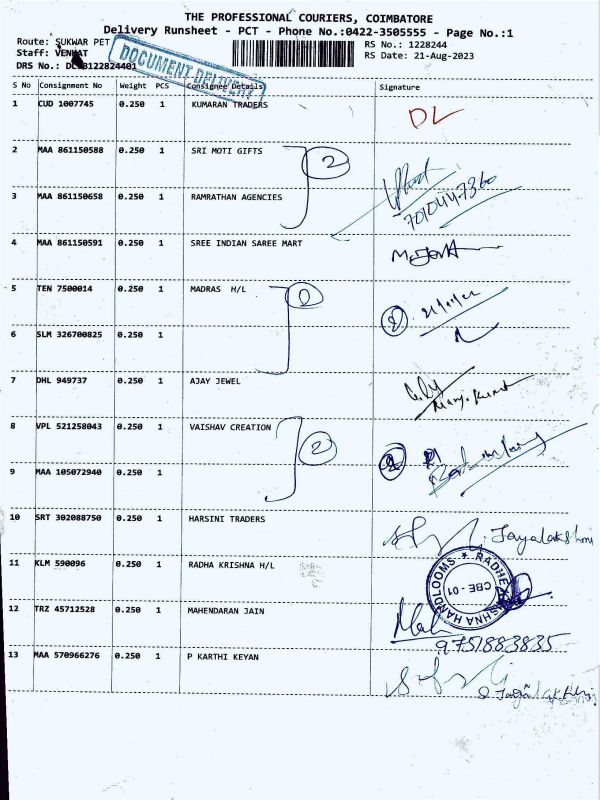 THE PROFESSIONAL COURIERS, COIMBATORE
Delivery Runsheet - PCT - Phone No.:0422-3505555 - Page No.:1
Route: SUKWAR PET
RS No.: 1228244
Staff: VENKAT
RS Date: 21-Aug-2023
DRS No.:
DOCUMENT DELIVERY
S No Consignment No Weight PCS Consignee Details Signature
1 CUD 1007745 0.250 1 KUMARAN TRADERS DL
2 MAA 861150588 0.250 1 SRI MOTI GIFTS 2
3 MAA 861150658 0.250 1 RAMRATHAN AGENCIES
4 MAA 861150591 0.250 1 SREE INDIAN SAREE MART
5 TEN 7500014 0.250 1 MADRAS H/L
6 SLM 326700825 0.250 1
7 DHL 949737 0.250 1 AJAY JEWEL
8 VPL 521258043 0.250 1 VAISHAV CREATION 2
9 MAA 105072940 0.250 1
10 SRT 302088750 0.250 1 HARSINI TRADERS Jayalakshmi
11 KLM 590096 0.250 1 RADHA KRISHNA H/L
CBE - 01
12 TRZ 45712528 0.250 1 MAHENDARAN JAIN
9751883835
13 MAA 570966276 0.250 1 P KARTHI KEYAN